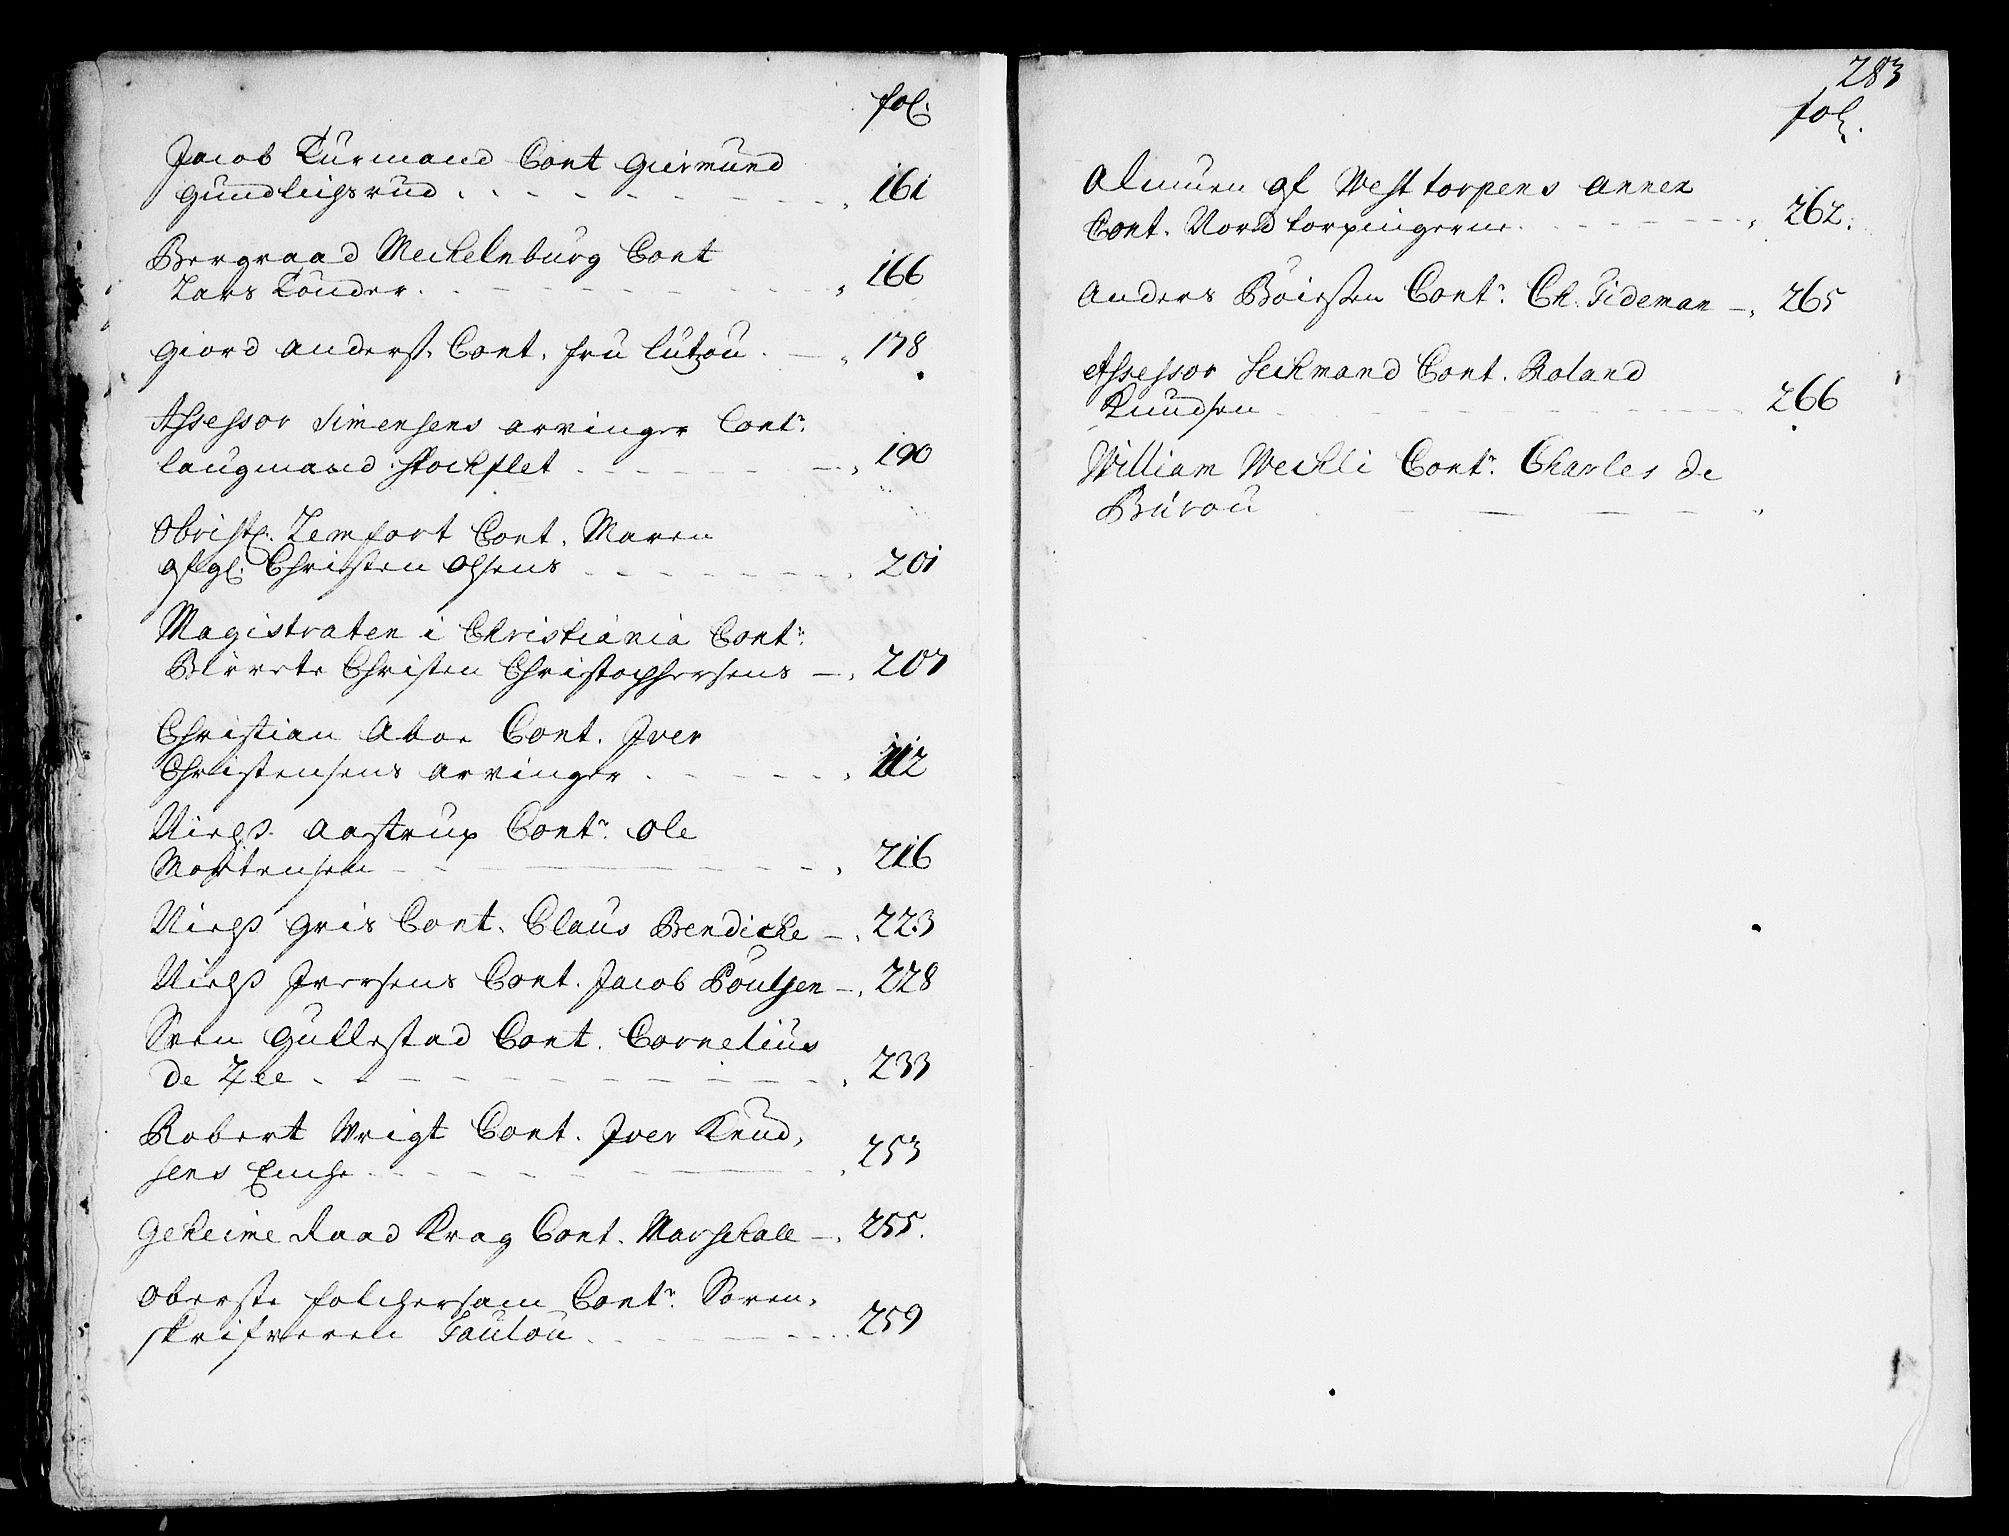 fol.
Jacob Turmand Cont Guirmund
gundleigsrud . . . . 161
Bergraad Mechelnburg Cont
Lars Tönder . . . 166
Giord Anderss. Cont. fru Lützou . — . 178
Assessor Simensens arvinger Contr.
laugmand Stockflet . . . 190
Obristl. Lemfort Cont. Maren
afgl. Christen Olsens . . . 201
Magistraten i Christiania Contr.
Christen Christophersens — . 207
Christian Aboe Cont. Iver
Christensens arvinger . . . 212
Nielss. Aastrup Contr. Ole
Mortensen . . . 216
Nielss Gris Cont. Claus Bendicke — . 223
Nielss Iversens Cont. Jacob Poulsen — . 228
Sven Gullestad Cont. Cornelius
de Zee . . . 233
Robert Wrigt Cont. Iver Knud,
sens Encke . . . 253
Geheime Raad Krag Cont. Marschall — . 255.
Oberste folchersam Contr. Soren,
skrifveren Taulou . . . 259
283
fol.
Almuen af Westtorpens annex
Cont. Nordtorpingerne . . . 262.
Anders Böiesen Contr. Ch. Tideman — . 265
Assessor Leckmand Cont. Roland
Knudsen . . . 266
William Weckli Contr. Charles de
Burou